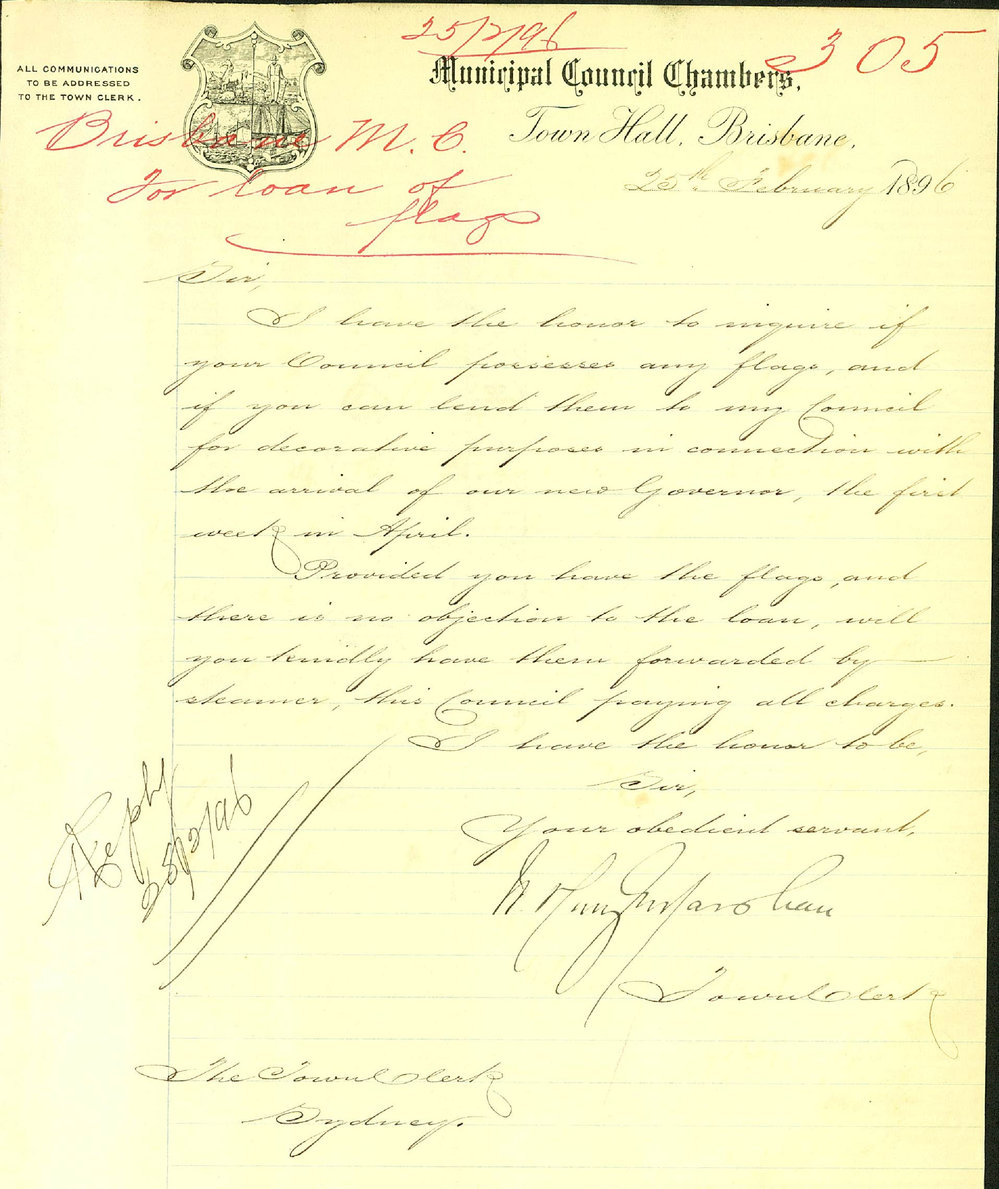 25/2/96
305
ALL COMMUNICATIONS
TO BE ADDRESSED
TO THE TOWN CLERK.
Municipal Council Chambers,
Town Hall, Brisbane,
25th February 1896
Brisbane M. C.
For loan of
flags
Sir,
I have the honor to inquire if
your Council possesses any flags, and
if you can lend them to my Council
for decorative purposes in connection with
the arrival of our new Governor, the first
week in April.
Provided you have the flags, and
there is no objection to the loan, will
you kindly have them forwarded by
steamer, this Council paying all charges.
I have the honor to be,
Sir,
Your obedient servant,
Town Clerk
Reply
28/2/96
The Town Clerk
Sydney.